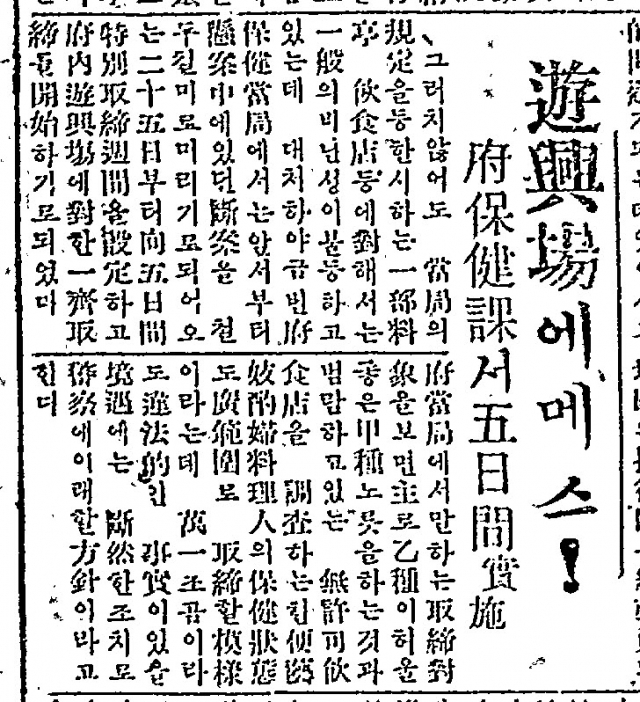 遊興場에메스!
府保健課서五日間實施
그러치않어도 當局의
規定을等한시하는一部料
亭 飮食店등에對해서는
一般의비난성이불등하고
있는데 대처하야금번府
保健當局에서는앞서부터
懸案中에있던斷案을 철
두철미로미리기로되어오
는二十五日부터向五日間
特別取締週間을設定하고
府內遊興場에對한一齊取
締를開始하기로되었다
府當局에서만하는取締對
象을보면主로乙種이허울
좋은甲種노릇을하는것과
범람하고있는 無許可飮
食店을 調査하는한便藝
妓酌婦料理人의保健狀態
도廣範圍로 取締할模樣
이라는데 萬一조곰이라
도違法的인 事實이있을
境遇에는 斷然한조치로
警察에이래할方針이라고
한다